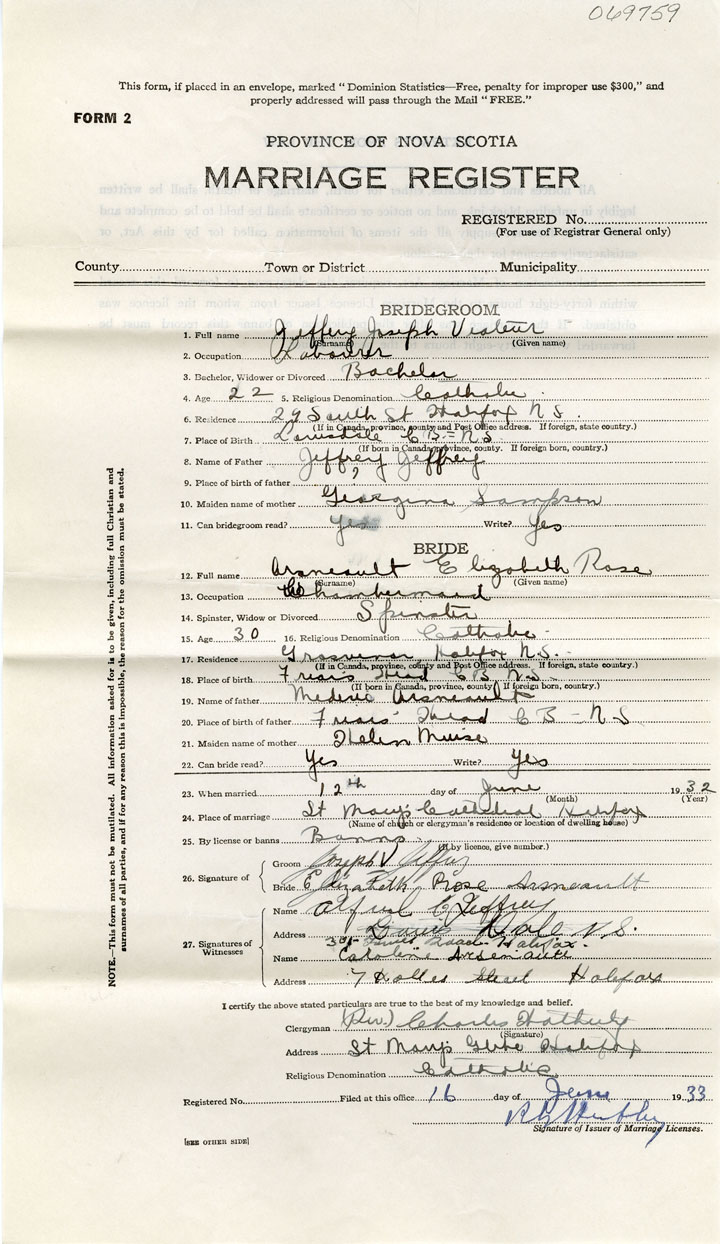 069759
This form, if placed in an envelope, marked "Dominion Statistics—Free, penalty for improper use $300," and
properly addressed will pass through the Mail "FREE."
FORM 2
PROVINCE OF NOVA SCOTIA
MARRIAGE REGISTER
REGISTERED No.
(For use of Registrar General only)
County Town or District Municipality
BRIDEGROOM
1. Full name Jeffery Joseph Viateur
(Surname) (Given name)
2. Occupation Labourer
3. Bachelor, Widower or Divorced Bachelor
4. Age 22 5. Religious Denomination Catholic
6. Residence 29 South St Halifax N S.
(If in Canada, province, county and Post Office address. If foreign, state country.)
7. Place of Birth CB - NS
(If born in Canada, province, county. If foreign born, country.)
8. Name of Father Jeffrey Jeffrey
9. Place of birth of father
10. Maiden name of mother Georgina Sampson
11. Can bridegroom read? yes Write? Yes
BRIDE
12. Full name Arsneault Elizabeth Rose
(Surname) (Given name)
13. Occupation Chambermaid
14. Spinster, Widow or Divorced Spinster
15. Age 30 16. Religious Denomination Catholic
17. Residence Grosvenor Halifax N.S.
(If in Canada, province, county and Post Office address. If foreign, state country.)
18. Place of birth Friars Head C B N S
(If born in Canada, province, county If foreign born, country.)
19. Name of father Mederic Arsneault
20. Place of birth of father Friars' Head C B - N S
21. Maiden name of mother Helen Muise
22. Can bride read? Yes Write? Yes
23. When married 12th day of June 1932
(Month) (Year)
24. Place of marriage St Mary's Cathedral Halifax
(Name of church or clergyman's residence or location of dwelling house)
25. By license or banns Banns
(If by licence, give number.)
26. Signature of Groom Joseph V Jeffrey
Bride Elizabeth Rose Arsneault
27. Signatures of Witnesses
Name Alfred C Jeffrey
Address N.S.
Halifax.
Name Caroline Arseniault
Address 7 Hollis Street Halifax
I certify the above stated particulars are true to the best of my knowledge and belief.
Clergyman (Rev.) Charles
(Signature)
Address St Mary's Glebe Halifax
Religious Denomination Catholic
Registered No. Filed at this office 16 day of June 1933
Signature of Issuer of Marriage Licenses.
[SEE OTHER SIDE]
NOTE.—This form must not be mutilated. All information asked for is to be given, including full Christian and
surnames of all parties, and if for any reason this is impossible, the reason for the omission must be stated.